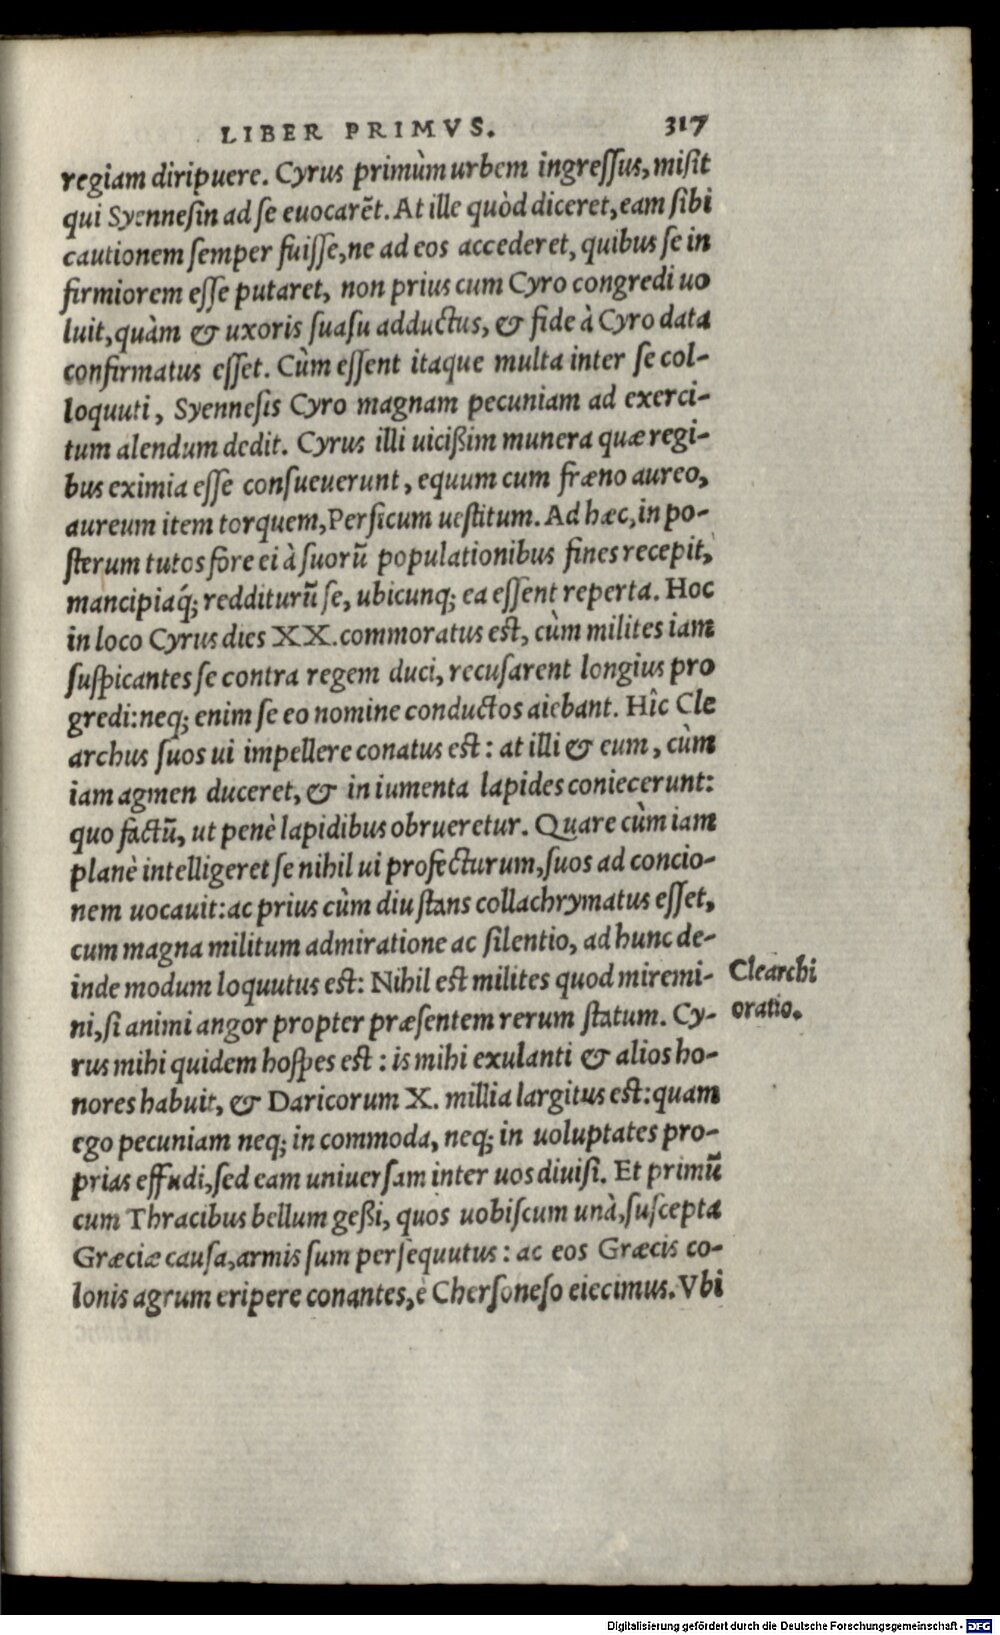 LIBER PRIMVS. 317
regiam diripuere. Cyrus primùm urbem ingreſſus, miſit
qui Syenneſin ad ſe euocarēt. At ille quòd diceret, eam ſibi
cautionem ſemper fuiſſe, ne ad eos accederet, quibus ſe in
firmiorem eſſe putaret, non prius cum Cyro congredi uo
luit, quàm & uxoris ſuaſu adductus, & fide à Cyro data
confirmatus eſſet. Cùm eſſent itaque multa inter ſe col-
loquuti, Syenneſis Cyro magnam pecuniam ad exerci-
tum alendum dedit. Cyrus illi uicißim munera quæ regi-
bus eximia eſſe conſueuerunt, equum cum fræno aureo,
aureum item torquem, Perſicum ueſtitum. Ad hæc, in po-
ſterum tutos fore ei à ſuorū populationibus fines recepit,
mancipiaq́; redditurū ſe, ubicunq; ea eſſent reperta. Hoc
in loco Cyrus dies XX. commoratus eſt, cùm milites iam
ſuſpicantes ſe contra regem duci, recuſarent longius pro
gredi: neq; enim ſe eo nomine conductos aiebant. Hîc Cle
archus ſuos ui impellere conatus eſt: at illi & eum, cùm
iam agmen duceret, & in iumenta lapides coniecerunt:
quo factū, ut penè lapidibus obrueretur. Quare cùm iam
planè intelligeret ſe nihil ui profecturum, ſuos ad concio-
nem uocauit: ac prius cùm diu ſtans collachrymatus eſſet,
cum magna militum admiratione ac ſilentio, ad hunc de-
inde modum loquutus eſt: Nihil eſt milites quod miremi-
ni, ſi animi angor propter præſentem rerum ſtatum. Cy-
rus mihi quidem hoſpes eſt: is mihi exulanti & alios ho-
nores habuit, & Daricorum X. millia largitus eſt: quam
ego pecuniam neq; in commoda, neq; in uoluptates pro-
prias effudi, ſed eam uniuerſam inter uos diuiſi. Et primū
cum Thracibus bellum geßi, quos uobiſcum unà, ſuſcepta
Græciæ cauſa, armis ſum perſequutus: ac eos Græcis co-
lonis agrum eripere conantes, è Cherſoneſo eiecimus. Vbi
Clearchi
oratio.
Digitalisierung gefördert durch die Deutsche Forschungsgemeinschaft - DFG